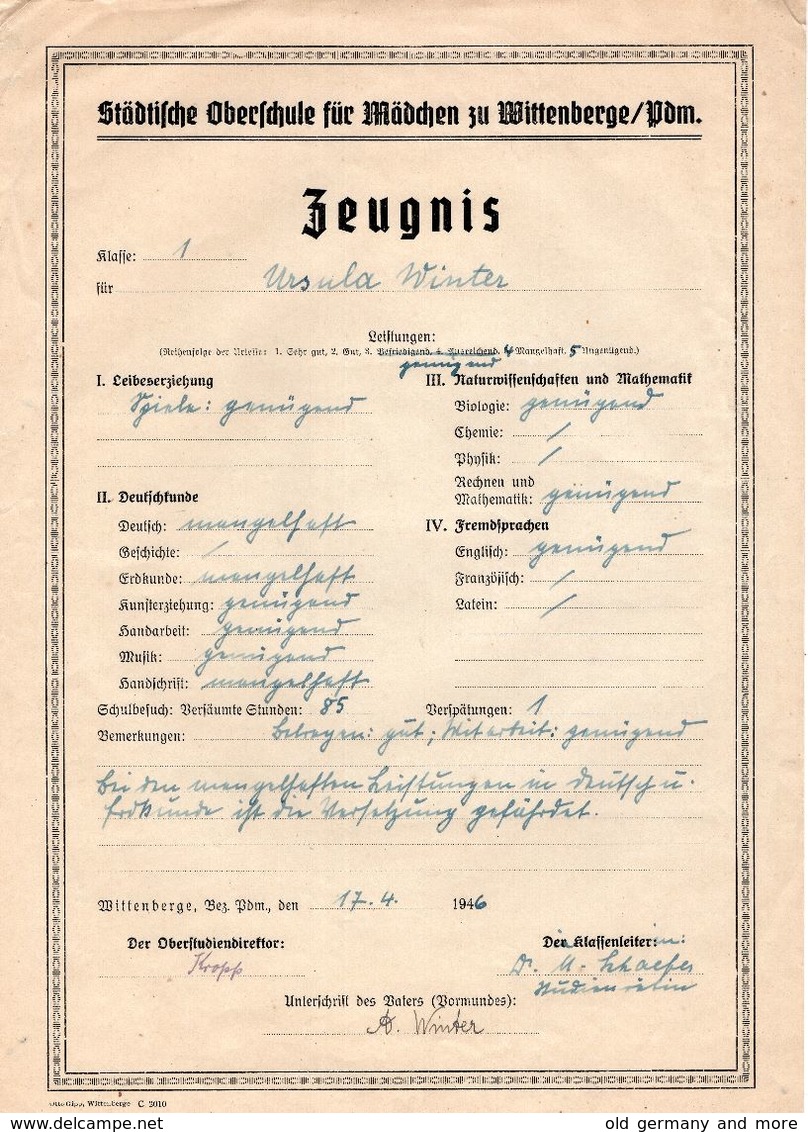 Städtische Oberschule für Mädchen zu Wittenberge/Pdm.
Zeugnis
Klasse: 1
für Ursula Winter
Leistungen:
(Reihenfolge der Urteile: 1. Sehr gut, 2. Gut, 3. Befriedigend, 4. Ausreichend, 4 Mangelhaft, 5 Ungenügend.)
genügend
I. Leibeserziehung
Spiele: genügend
II. Deutschkunde
Deutsch: mangelhaft
Geschichte: /
Erdkunde: mangelhaft
Kunsterziehung: genügend
Handarbeit: genügend
Musik: genügend
Handschrift: mangelhaft
III. Naturwissenschaften und Mathematik
Biologie: genügend
Chemie: /
Physik: /
Rechnen und
Mathematik: genügend
IV. Fremdsprachen
Englisch: genügend
Französisch: /
Latein: /
Schulbesuch: Versäumte Stunden: 85 Verspätungen: 1
Bemerkungen: Betragen: gut; Mitarbeit: genügend
Bei den mangelhaften Leistungen in Deutsch u.
Erdkunde ist die Versetzung gefährdet.
Wittenberge, Bez. Pdm., den 17.4. 1946
Der Oberstudiendirektor:
Kropp
Die Klassenleiterin:
Dr. U. Schaefer
Studienrätin
Unterschrift des Vaters (Vormundes):
A. Winter
Otto Gipp, Wittenberge C 3010
www.delcampe.net
old germany and more